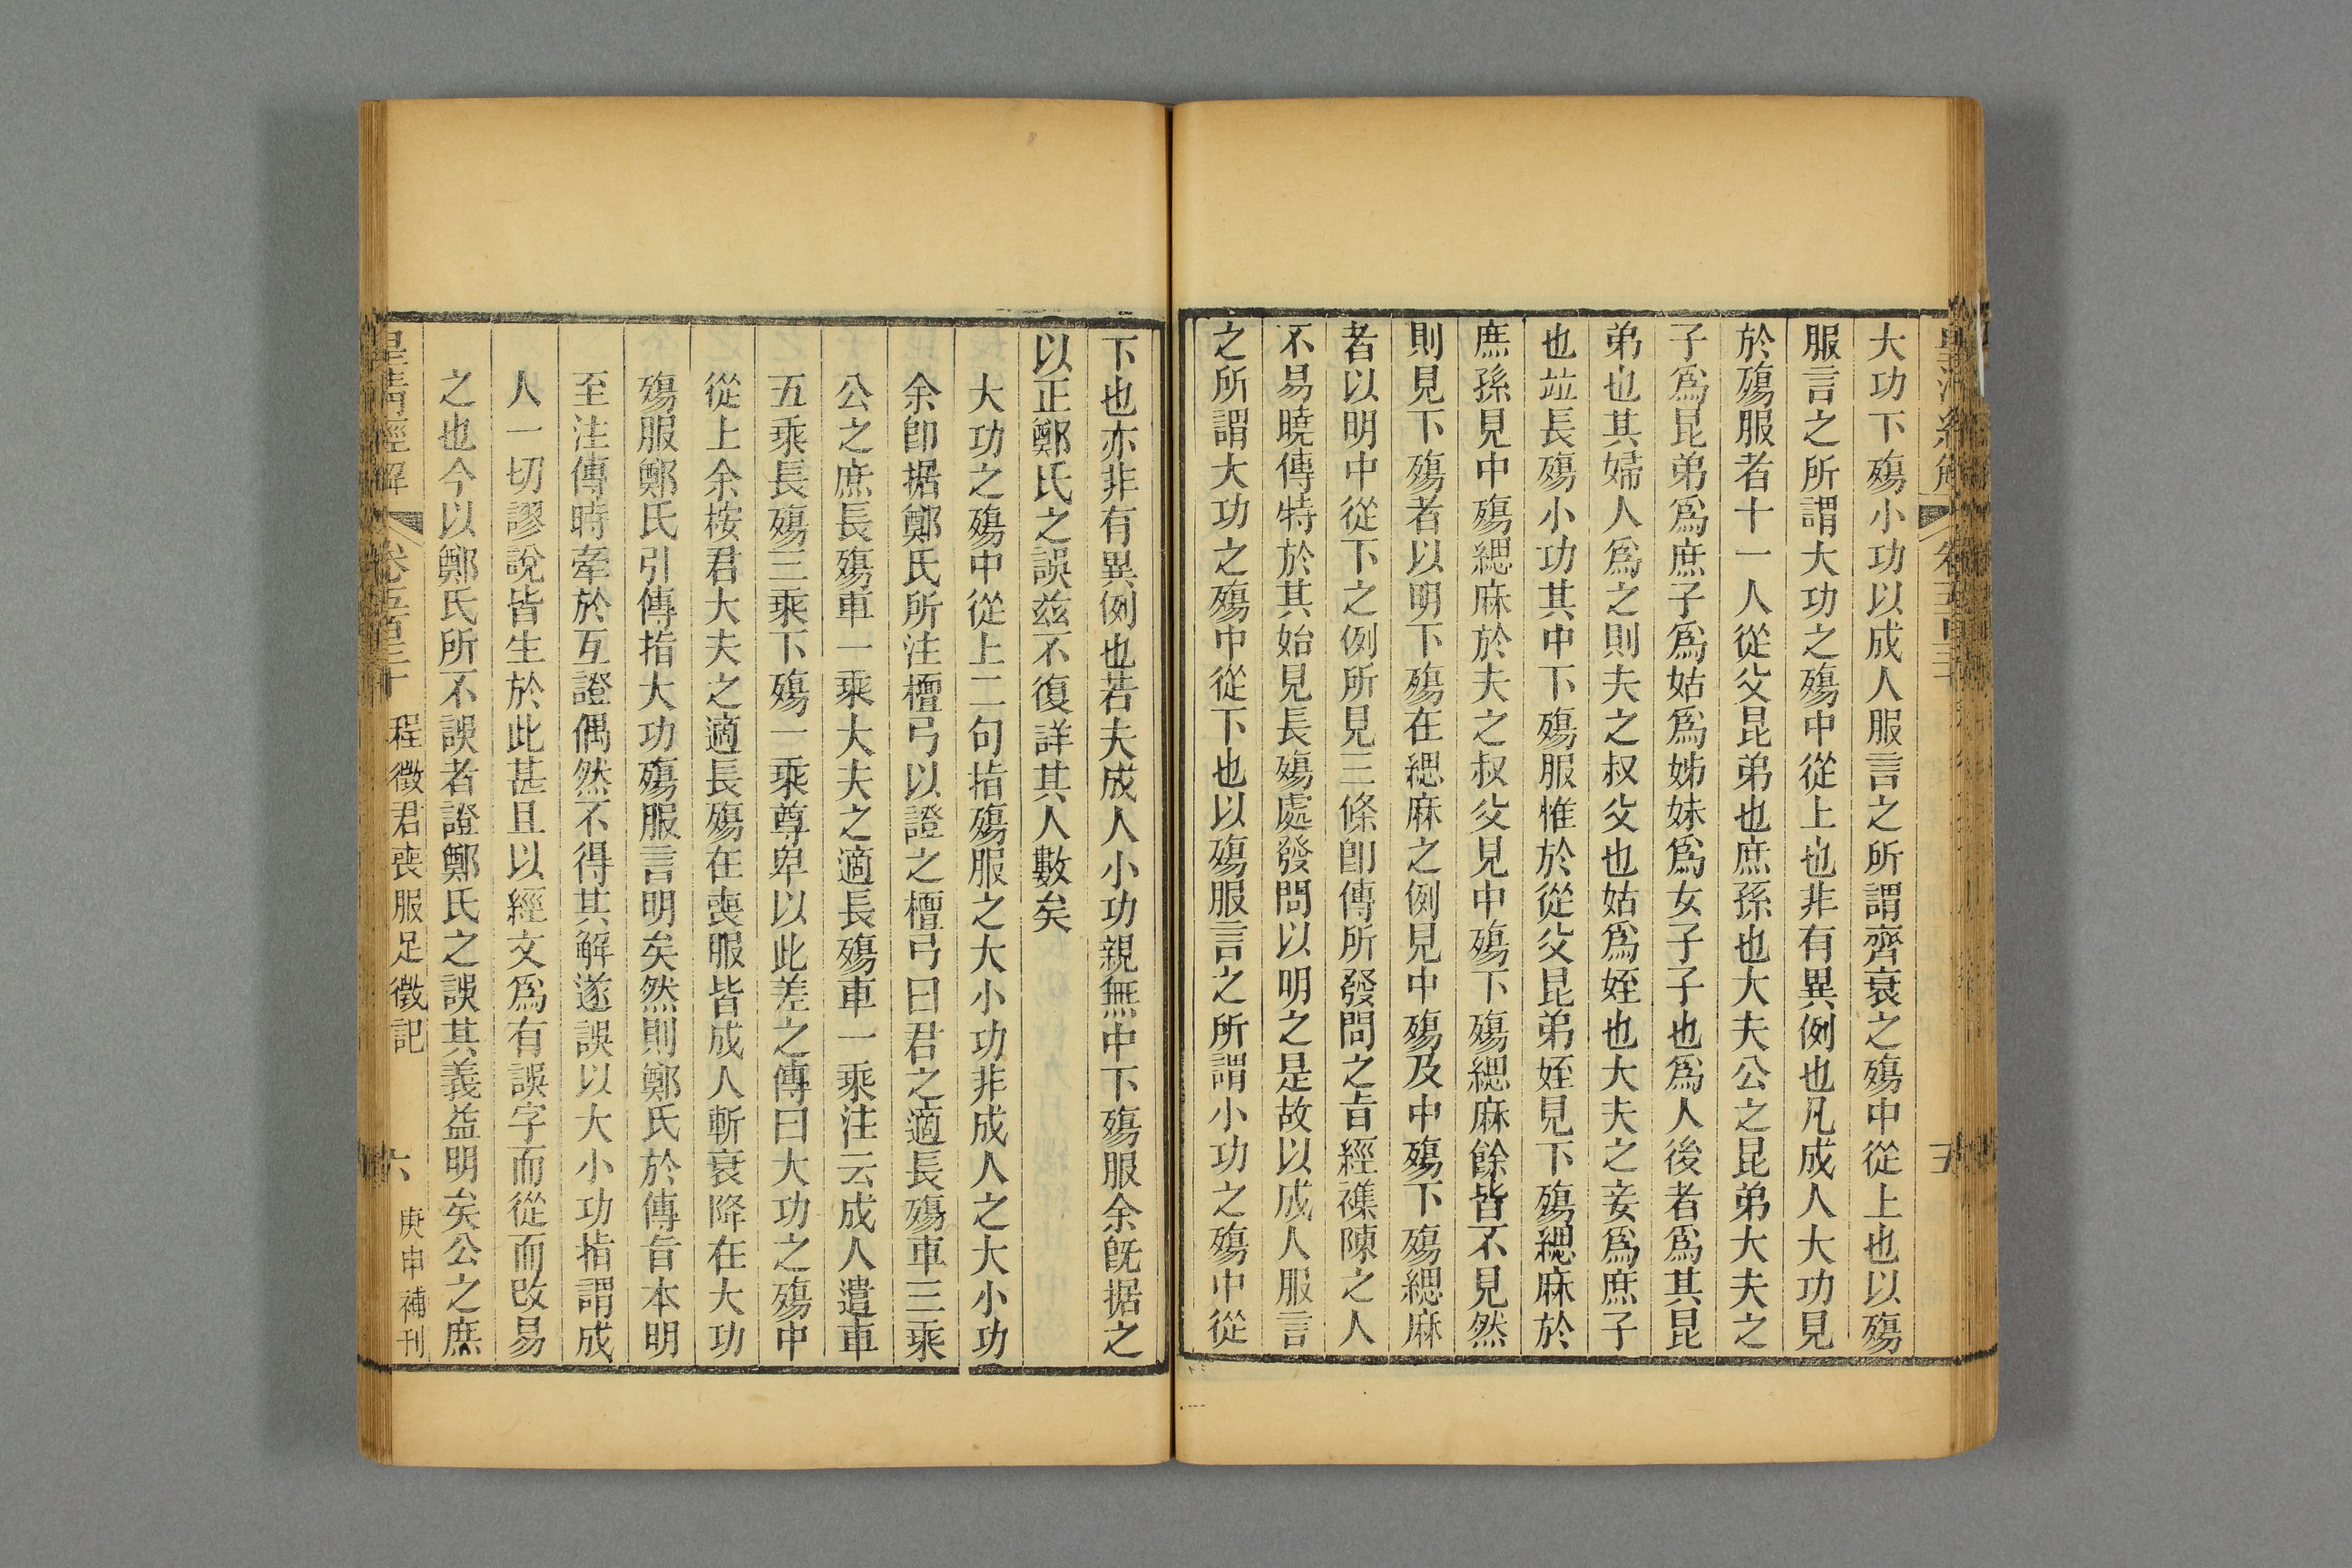 大功下殤小功以成人服言之所謂齊衰之殤中從上也以殤
服言之所謂大功之殤中從上也非有異例也凡成人大功見
於殤服者十一人從父昆弟也庶孫也大夫公之昆弟大夫之
子爲昆弟爲庶子爲姑爲姊妹爲女子子也爲人後者爲其昆
弟也其婦人爲之則夫之叔父也姑爲姪也大夫之妾爲庶子
也竝長殤小功其中下殤服惟於從父昆弟姪見下殤緦麻於
庶孫見中殤緦麻於夫之叔父見中殤下殤緦麻餘皆不見然
則見下殤者以明下殤在緦麻之例見中殤及中殤下殤緦麻
者以明中從下之例所見三條卽傳所發問之旨經襍陳之人
不易曉傳特於其始見長殤處發問以明之是故以成人服言
之所謂大功之殤中從下也以殤服言之所謂小功之殤中從
下也亦非有異例也若夫成人小功親無中下殤服余旣据之
以正鄭氏之誤兹不復詳其人數矣
大功之殤中從上二句指殤服之大小功非成人之大小功
余卽据鄭氏所注檀弓以證之檀弓曰君之適長殤車三乘
公之庶長殤車一乘大夫之適長殤車一乘注云成人遣車
五乘長殤三乘下殤一乘尊卑以此差之傳曰大功之殤中
從上余桉君大夫之適長殤在喪服皆成人斬衰降在大功
殤服鄭氏引傳指大功殤服言明矣然則鄭氏於傳旨本明
至注傳時牽於互證偶然不得其解遂誤以大小功指謂成
人一切謬說皆生於此甚且以經文爲有誤字而從而改易
之也今以鄭氏所不誤者證鄭氏之誤其義益明矣公之庶
皇清經解 卷五百三十 程徵君喪服足徵記 六 庚申補刊